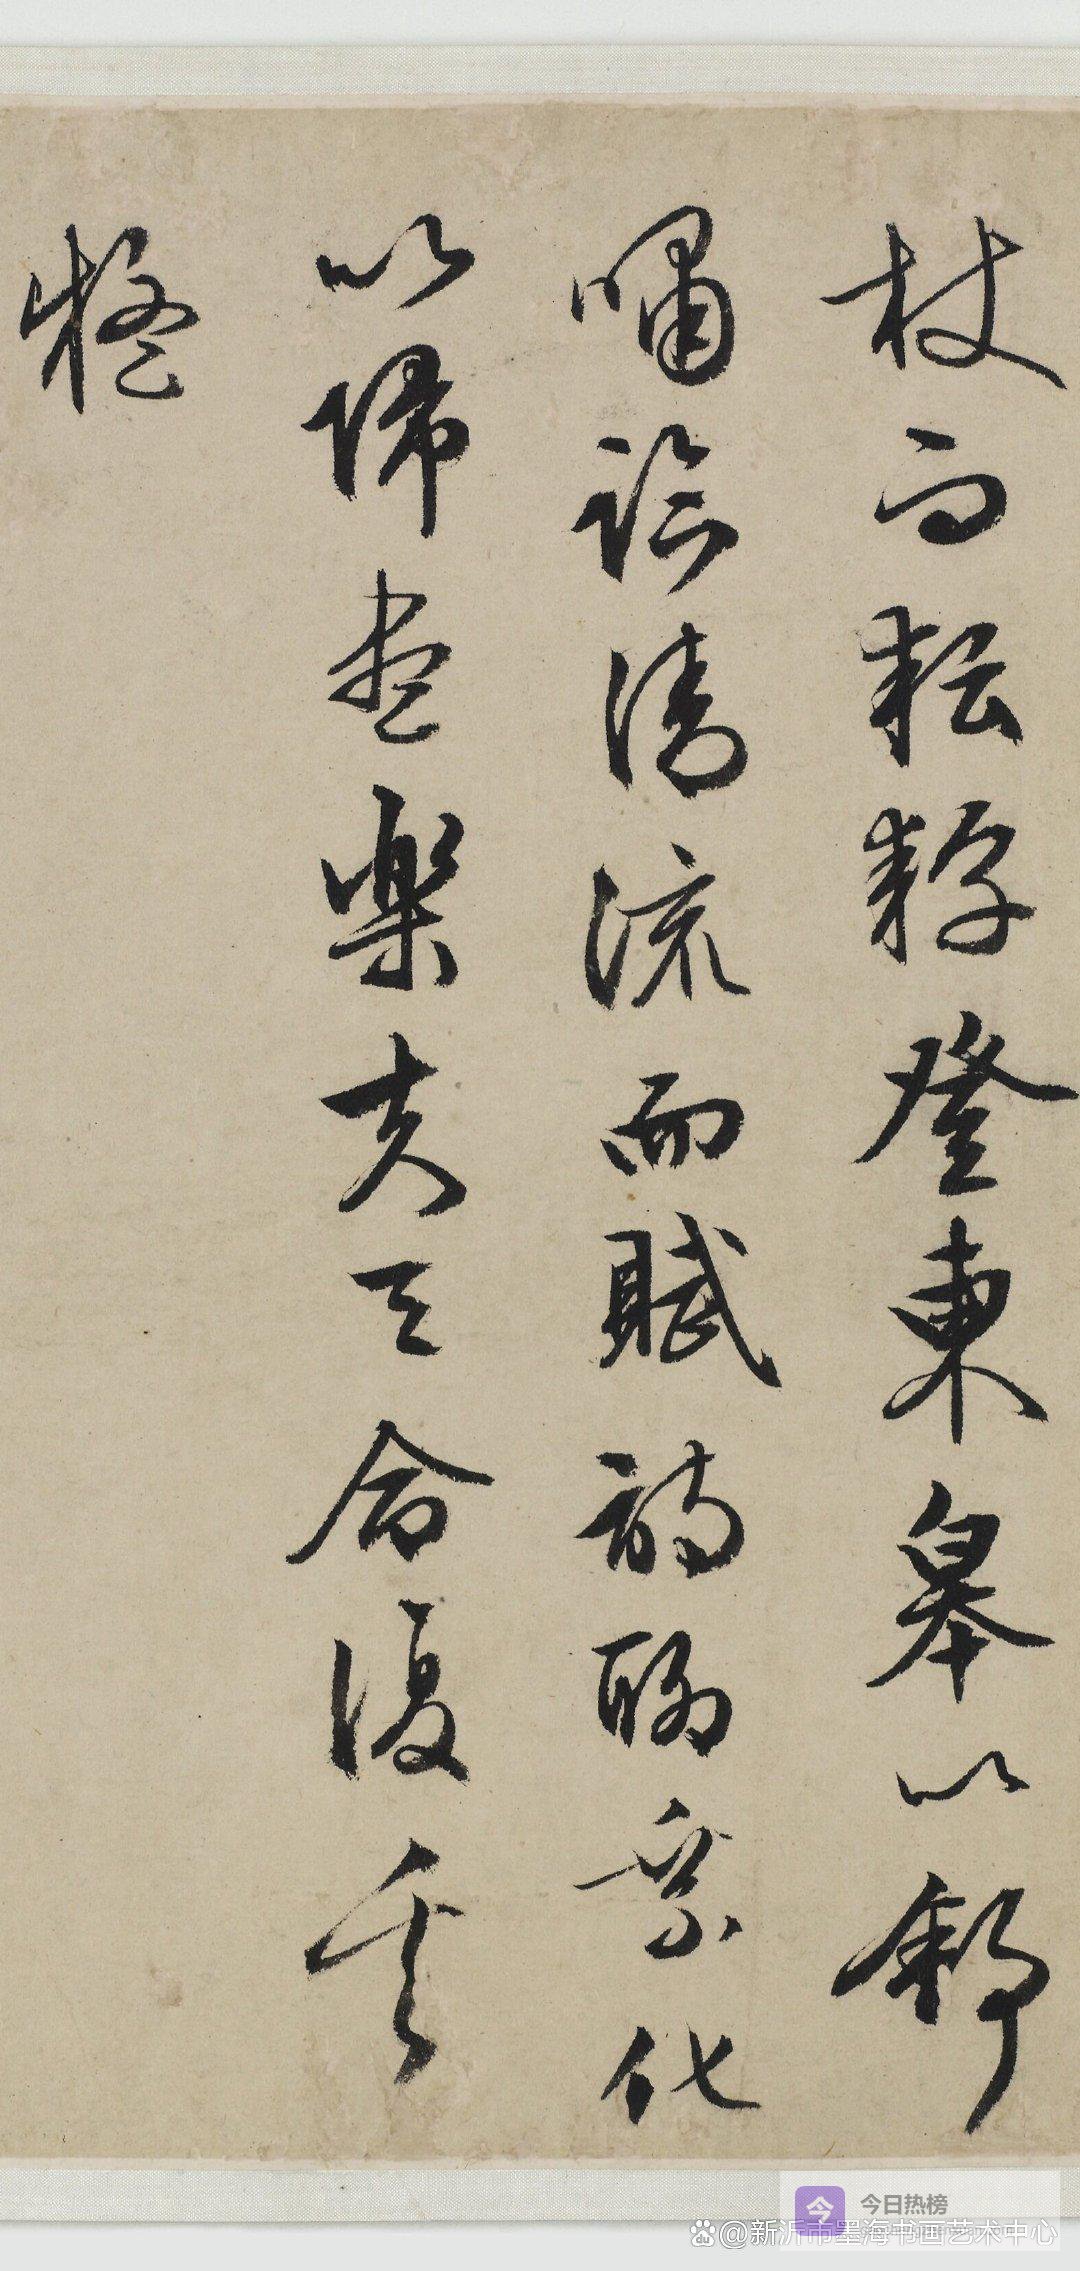 杖而耘耔登東皋以舒
嘯臨清流而賦詩聊乘化
以歸盡樂夫天命復奚
疑
今日热榜
@新沂市墨海书画艺术中心